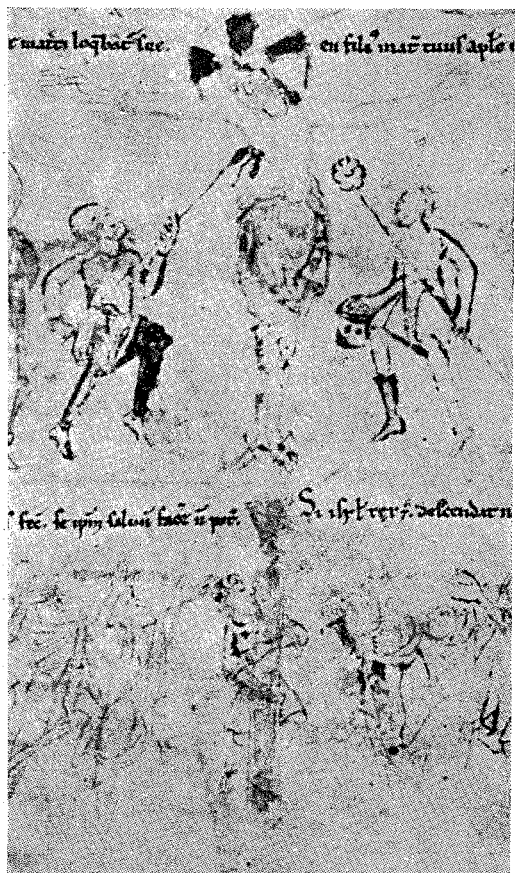 matri loqbat sue. en fili⁹ mat̄ tuus aplō
fec̄. se ip̄m saluū facē n̄ pot̄. Si isrl̄ rex ē. descendat n